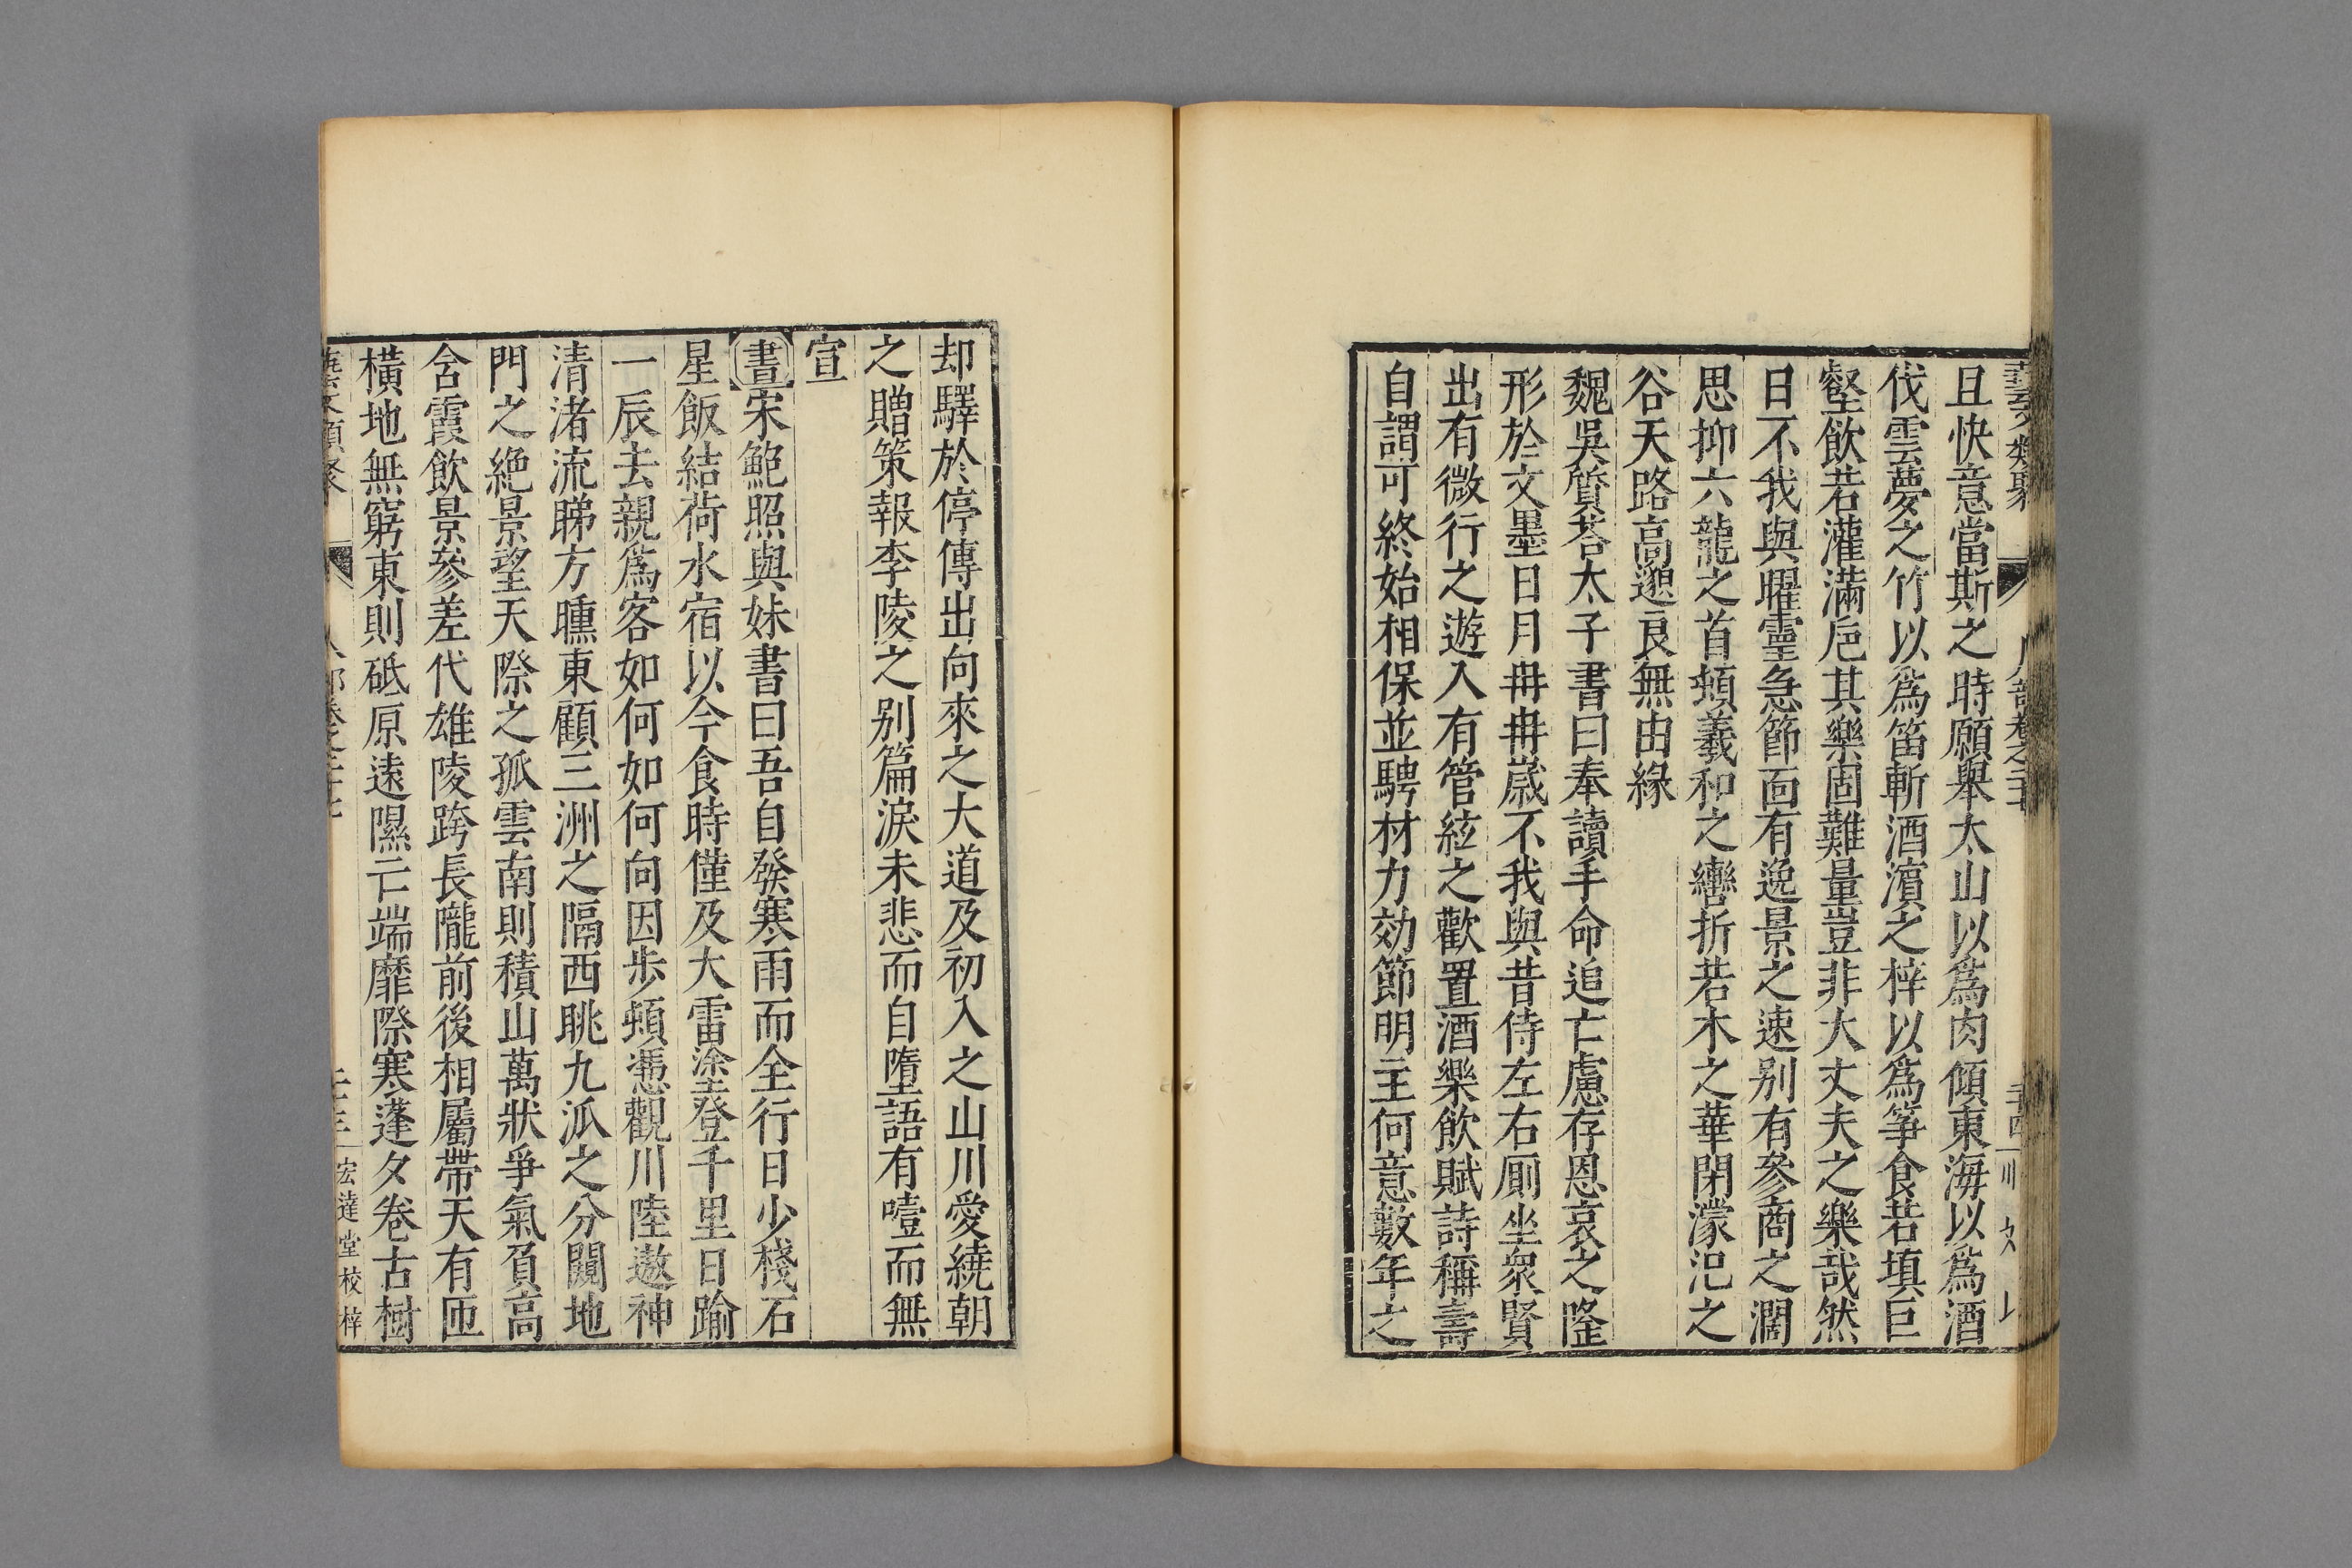 藝文類聚 人部卷之二十 二十四
且快意當斯之時願舉太山以爲肉傾東海以爲酒
伐雲夢之竹以爲笛斬酒濵之梓以爲筝食若填巨
壑飲若灌滿巵其樂固難量豈非大丈夫之樂哉然
日不我與曜靈急節面有逸景之速别有參商之濶
思抑六龍之首頓羲和之轡折若木之華閉濛汜之
谷天路高邈良無由緣
魏吳質荅太子書曰奉讀手命追亡慮存恩哀之隆
形於文墨日月冉冉歳不我與昔侍左右厠坐衆賢
出有微行之遊入有管絃之歡置酒樂飲賦詩稱壽
自謂可終始相保並騁材力効節明主何意數年之
却驛於停傳出向來之大道及初入之山川愛繞朝
之贈策報李陵之别篇淚未悲而自墮語有噎而無
宣
書宋鮑照與妹書曰吾自發寒雨而全行日少棧石
星飯結荷水宿以今食時僅及大雷塗登千里日踰
一辰去親爲客如何如何向因歩頓慿觀川陸遨神
清渚流睇方曛東顧三洲之隔西眺九泒之分闚地
門之絶景望天際之孤雲南則積山萬狀爭氣負高
含霞飲景參差代雄陵跨長隴前後相屬帶天有匝
横地無窮東則砥原遠隰亡端靡際寒蓬夕卷古樹
藝文類聚 人部卷之二十七 二十三 宏達堂校梓